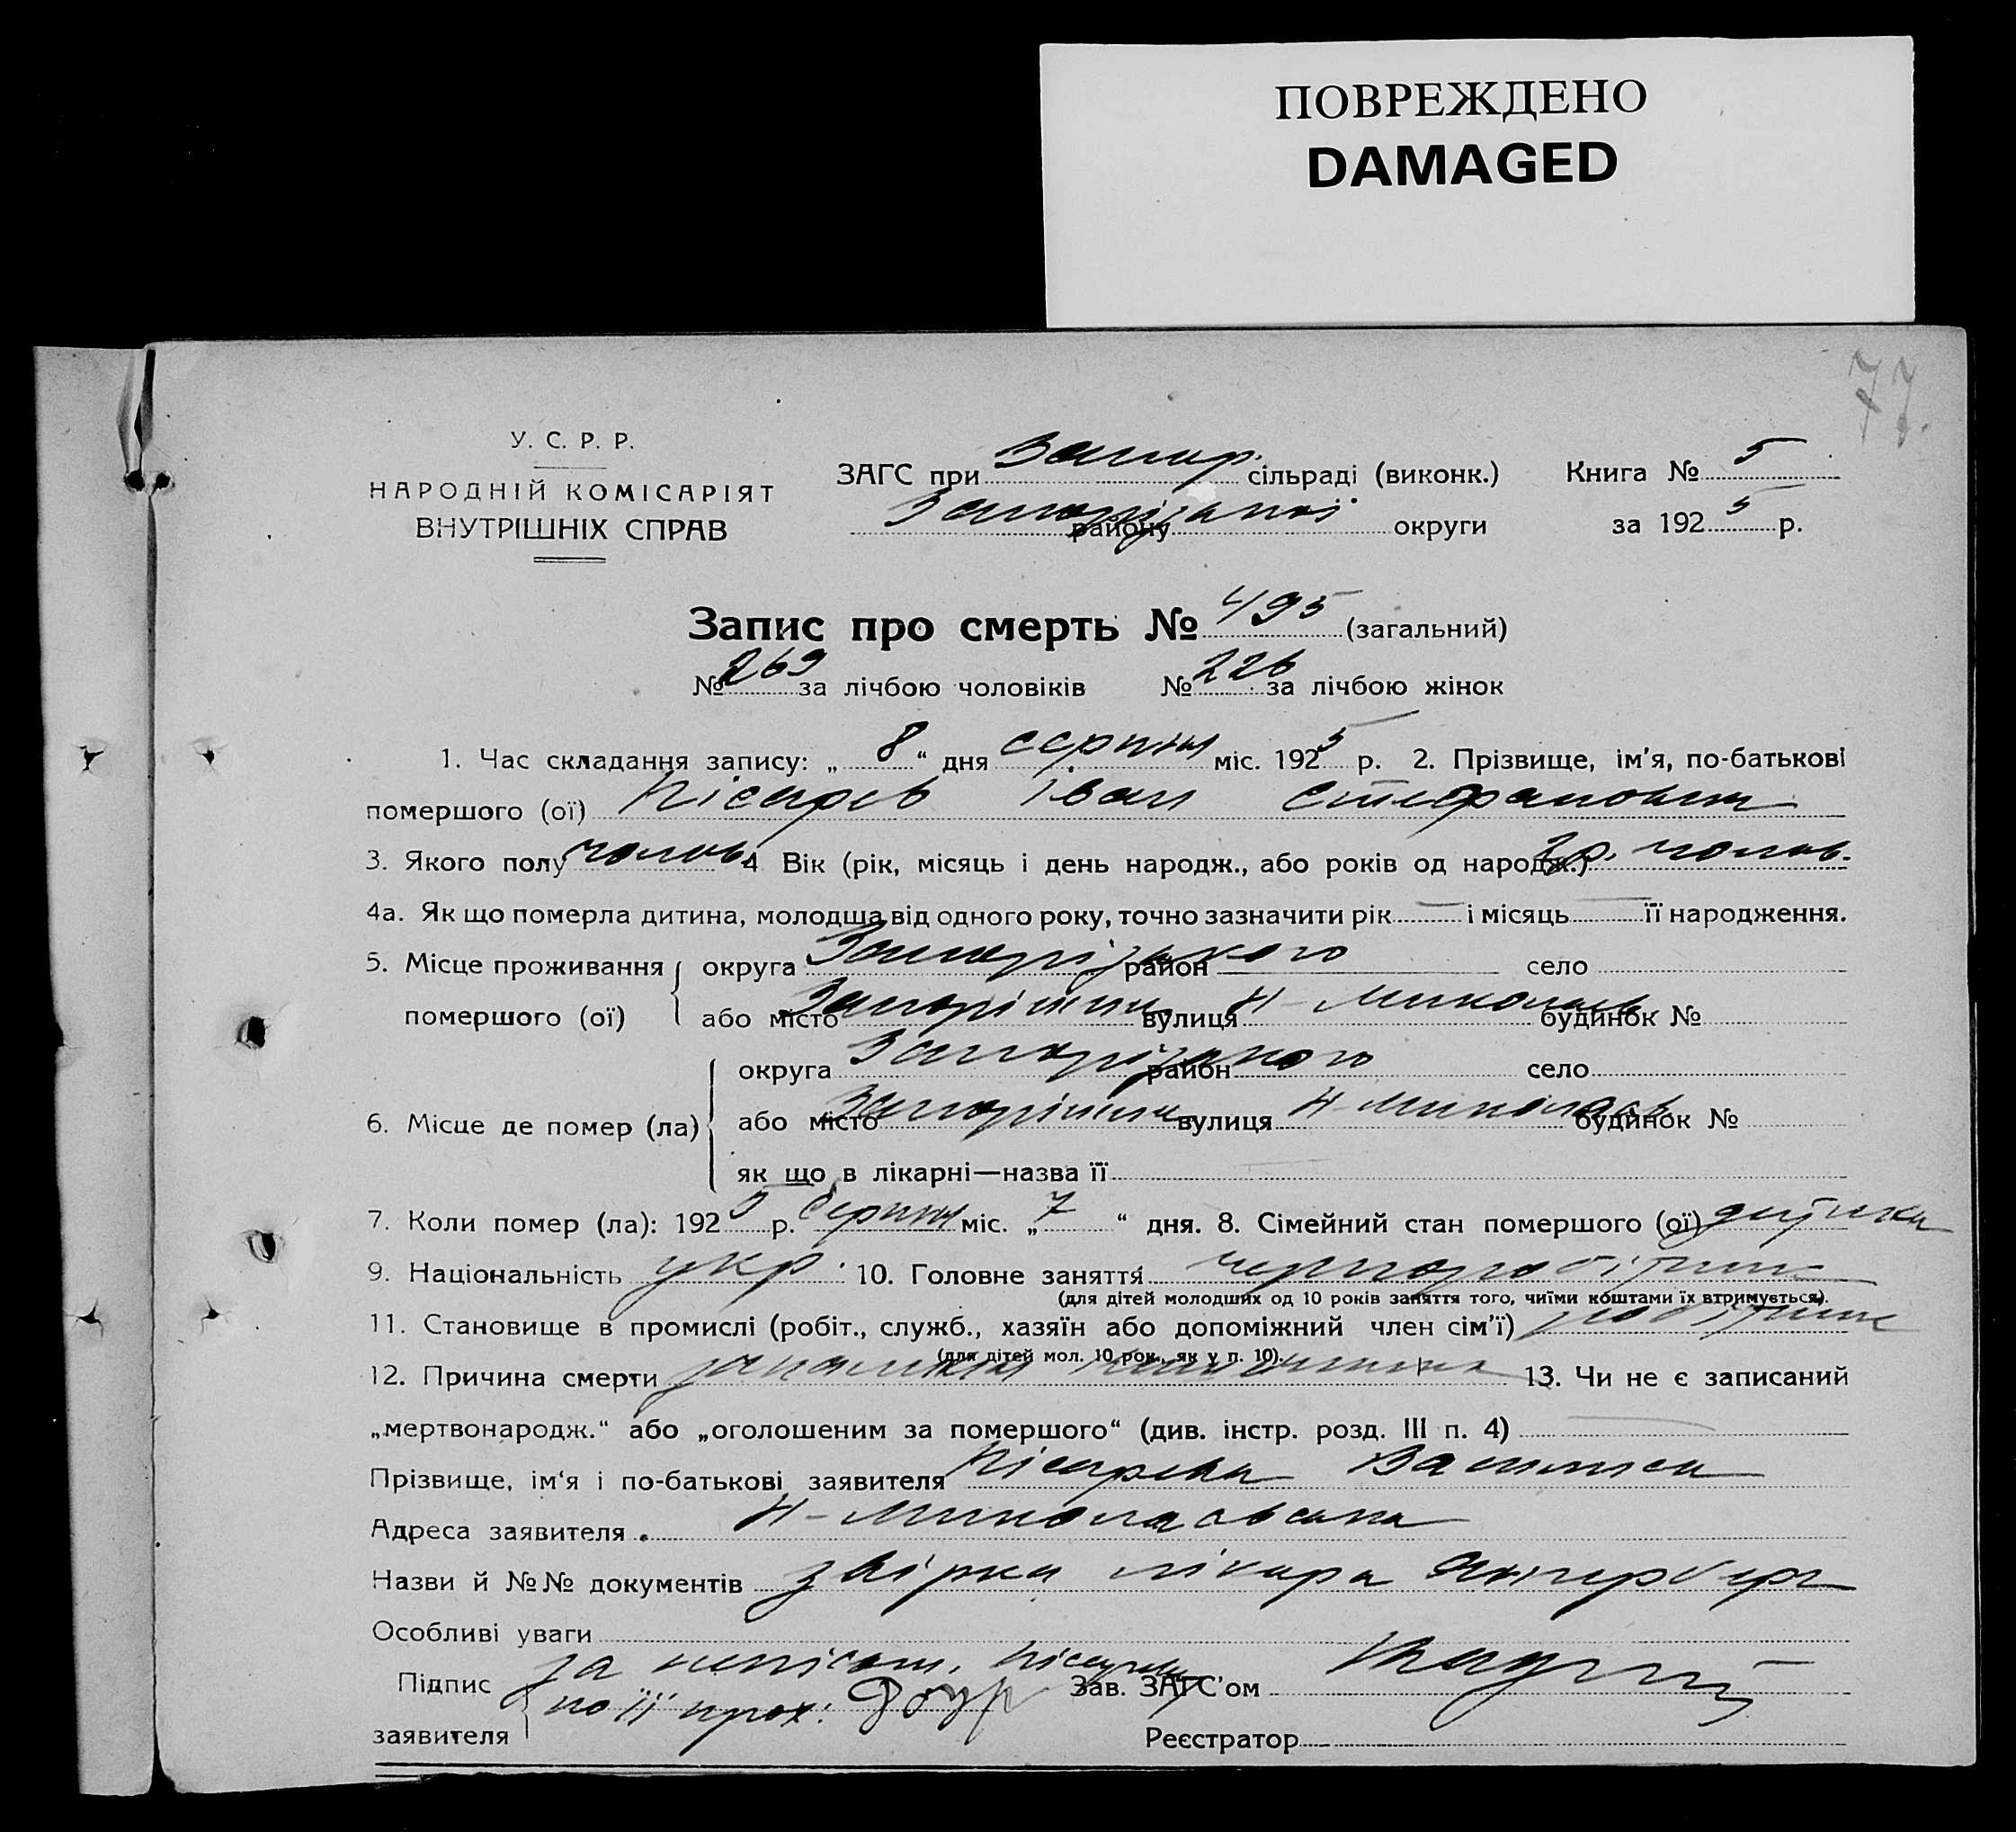 ПОВРЕЖДЕНО
DAMAGED
77.
У. С. Р. Р.
НАРОДНІЙ КОМІСАРІЯТ
ВНУТРІШНІХ СПРАВ
ЗАГС при Запор. сільраді (виконк.) Книга № 5
Запорізької району округи за 1925 р.
Запис про смерть № 495 (загальний)
№ 269 за лічбою чоловіків № 226 за лічбою жінок
1. Час складання запису: „ 8 “ дня серпня міс. 1925 р. 2. Прізвище, ім'я, по-батькові
помершого (ої) Пісарев Іван Стефанович
3. Якого полу чолов. 4 Вік (рік, місяць і день народж., або років од народж.) 2 р.
4а. Як що померла дитина, молодша від одного року, точно зазначити рік — і місяць — її народження.
5. Місце проживання округа Запорізького район село
помершого (ої) або місто Запоріжжя вулиця Н-Миколаєв будинок №
округа Запорізького район село
6. Місце де помер (ла) або місто Запоріжжя вулиця Н-Миколаєв будинок №
як що в лікарні—назва її
7. Коли помер (ла): 1925 р. серпня міс. „ 7 “ дня. 8. Сімейний стан помершого (ої) дитина
9. Національність укр. 10. Головне заняття чорноробітник
(для дітей молодших од 10 років заняття того, чиїми коштами їх втримується).
11. Становище в промислі (робіт., служб., хазяїн або допоміжний член сім'ї) робітник
(для дітей мол. 10 рок., як у п. 10).
12. Причина смерти запалення 13. Чи не є записаний
„мертвонародж.“ або „оголошеним за помершого“ (див. інстр. розд. III п. 4)
Прізвище, ім'я і по-батькові заявителя Пісарева
Адреса заявителя Н-Миколаєвська
Назви й №№ документів лікара
Особливі уваги
Підпис за непісьм. Пісареву Зав. ЗАГС'ом
по її прох:
заявителя Реєстратор